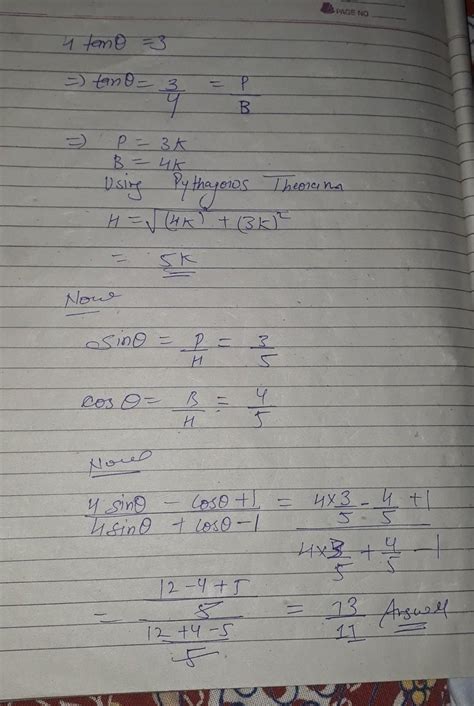 PAGE NO
4 tanθ = 3
⇒ tanθ = 3/4 = P/B
⇒ P = 3K
B = 4K
Using Pythagoros Theoram
H = √(4K)² + (3K)²
= 5K
Now
sinθ = P/H = 3/5
cosθ = B/H = 4/5
Now
(4 sinθ - cosθ + 1)/(4 sinθ + cosθ - 1) = (4×3/5 - 4/5 + 1)/(4×3/5 + 4/5 - 1)
= ((12 - 4 + 5)/5)/((12 + 4 - 5)/5) = 13/11 Answer